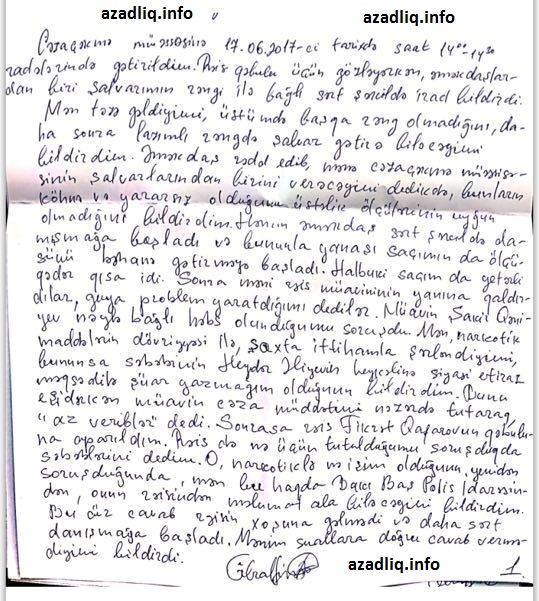 azadliq.info
azadliq.info
Cəzaçəkmə müəssəsinə 17.06.2017-ci tarixdə saat 14⁰⁰-14³⁰
radələrində gətirildim. Rəis qəbulu üçün gözləyərkən, əməkdaşlar-
dan biri şalvarımın rəngi ilə bağlı sərt şəkildə irad bildirdi.
Mən təzə gəldiyimi, üstümdə başqa rəng olmadığını, da-
ha sonra lazımlı rəngdə şalvar gətirə biləcəyimi
bildirdim. Əməkdaş rədd edib, mənə cəzaçəkmə müəssisə-
sinin şalvarlarından birini verəcəyini dedikdə, bunların
köhnə və yararsız olduğunu üstəlik ölçülərinin uyğun
olmadığını bildirdim. Həmin əməkdaş sərt şəkildə da-
nışmağa başladı və bununla yanaşı saçımın da ölçü-
sünü bəhanə gətirməyə başladı. Halbuki saçım da yetərli
qədər qısa idi. Sonra məni rəis müavininin yanına qaldır-
dılar, guya problem yaratdığımı dedilər. Müavin Şakir Qəni-
yev nəylə bağlı həbs olunduğumu soruşdu. Mən, narkotik
maddələrin dövriyyəsi ilə, saxta ittihamla şərləndiyimi,
bununsa səbəbinin Heydər Əliyevin heykəlinə siyasi etiraz
məqsədilə şüar yazmağım olduğunu bildirdim. Bunu
eşidərkən müavin cəza müddətini nəzərdə tutaraq,
"az veriblər" dedi. Sonrasa rəis Fikrət Qafarovun qəbulu-
na aparıldım. Rəis də nə üçün tutulduğumu soruşduqda
səbəblərini dedim. O, narkotiklə nə işim olduğunu, yenidən
soruşduğunda, mən bu haqda Bakı Baş Polis İdarəsin-
dən, onun rəisindən məlumat ala biləcəyini bildirdim.
Bu cür cavab rəisin xoşuna gəlmədi və daha sərt
danışmağa başladı. Mənim suallara doğru cavab vermə-
diyimi bildirdi.
1.
azadliq.info